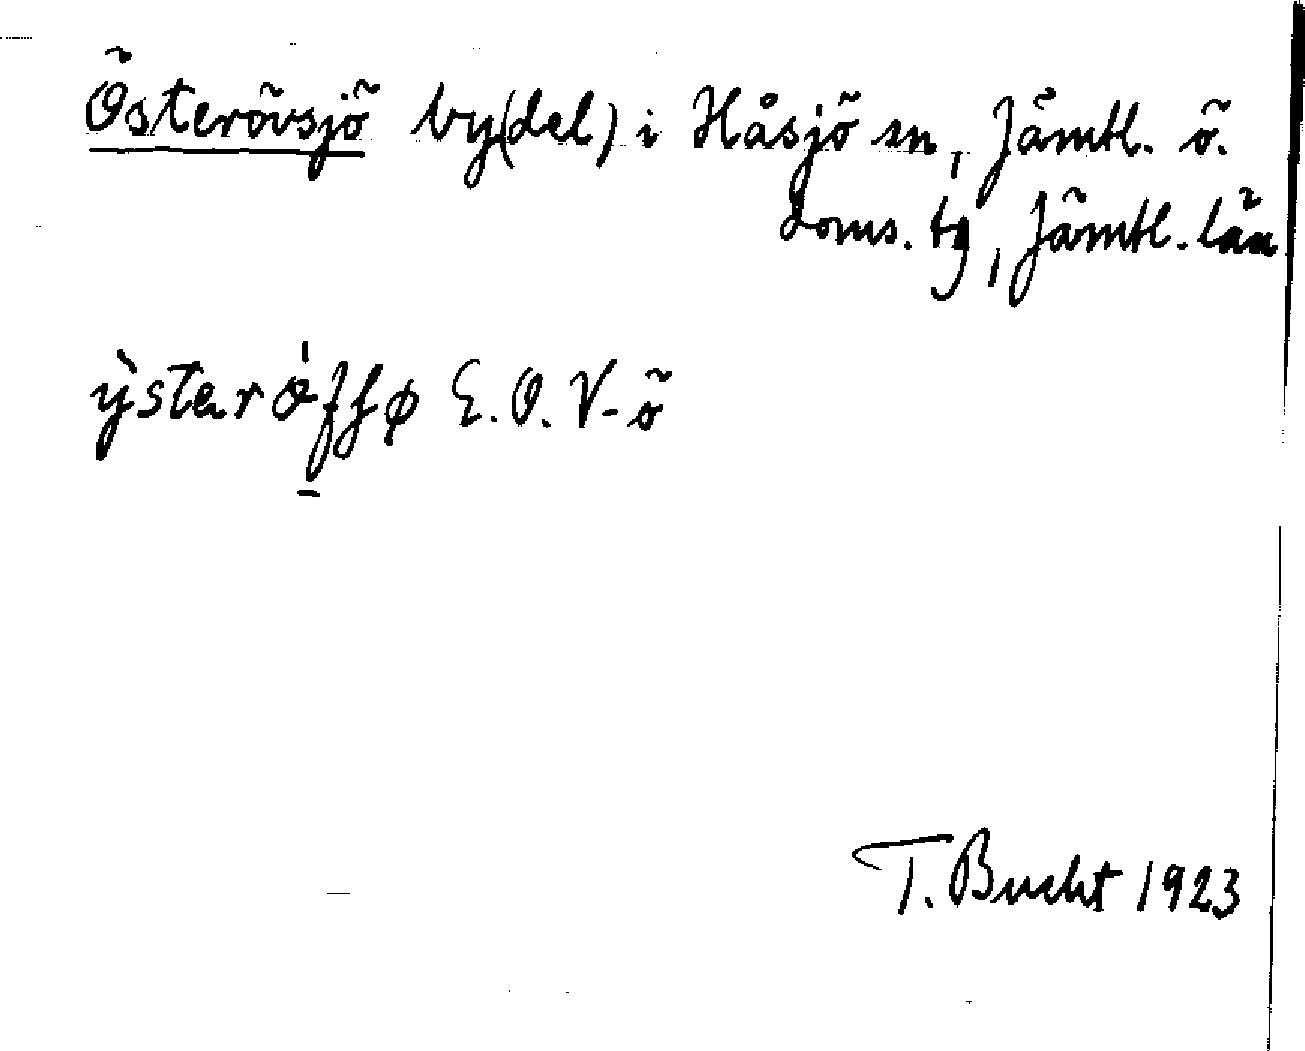 Österövsjö by(del) i Håsjö sn, Jämtl. ö.
doms. tg, Jämtl. län
E. O. V-ö
T. Bucht 1923